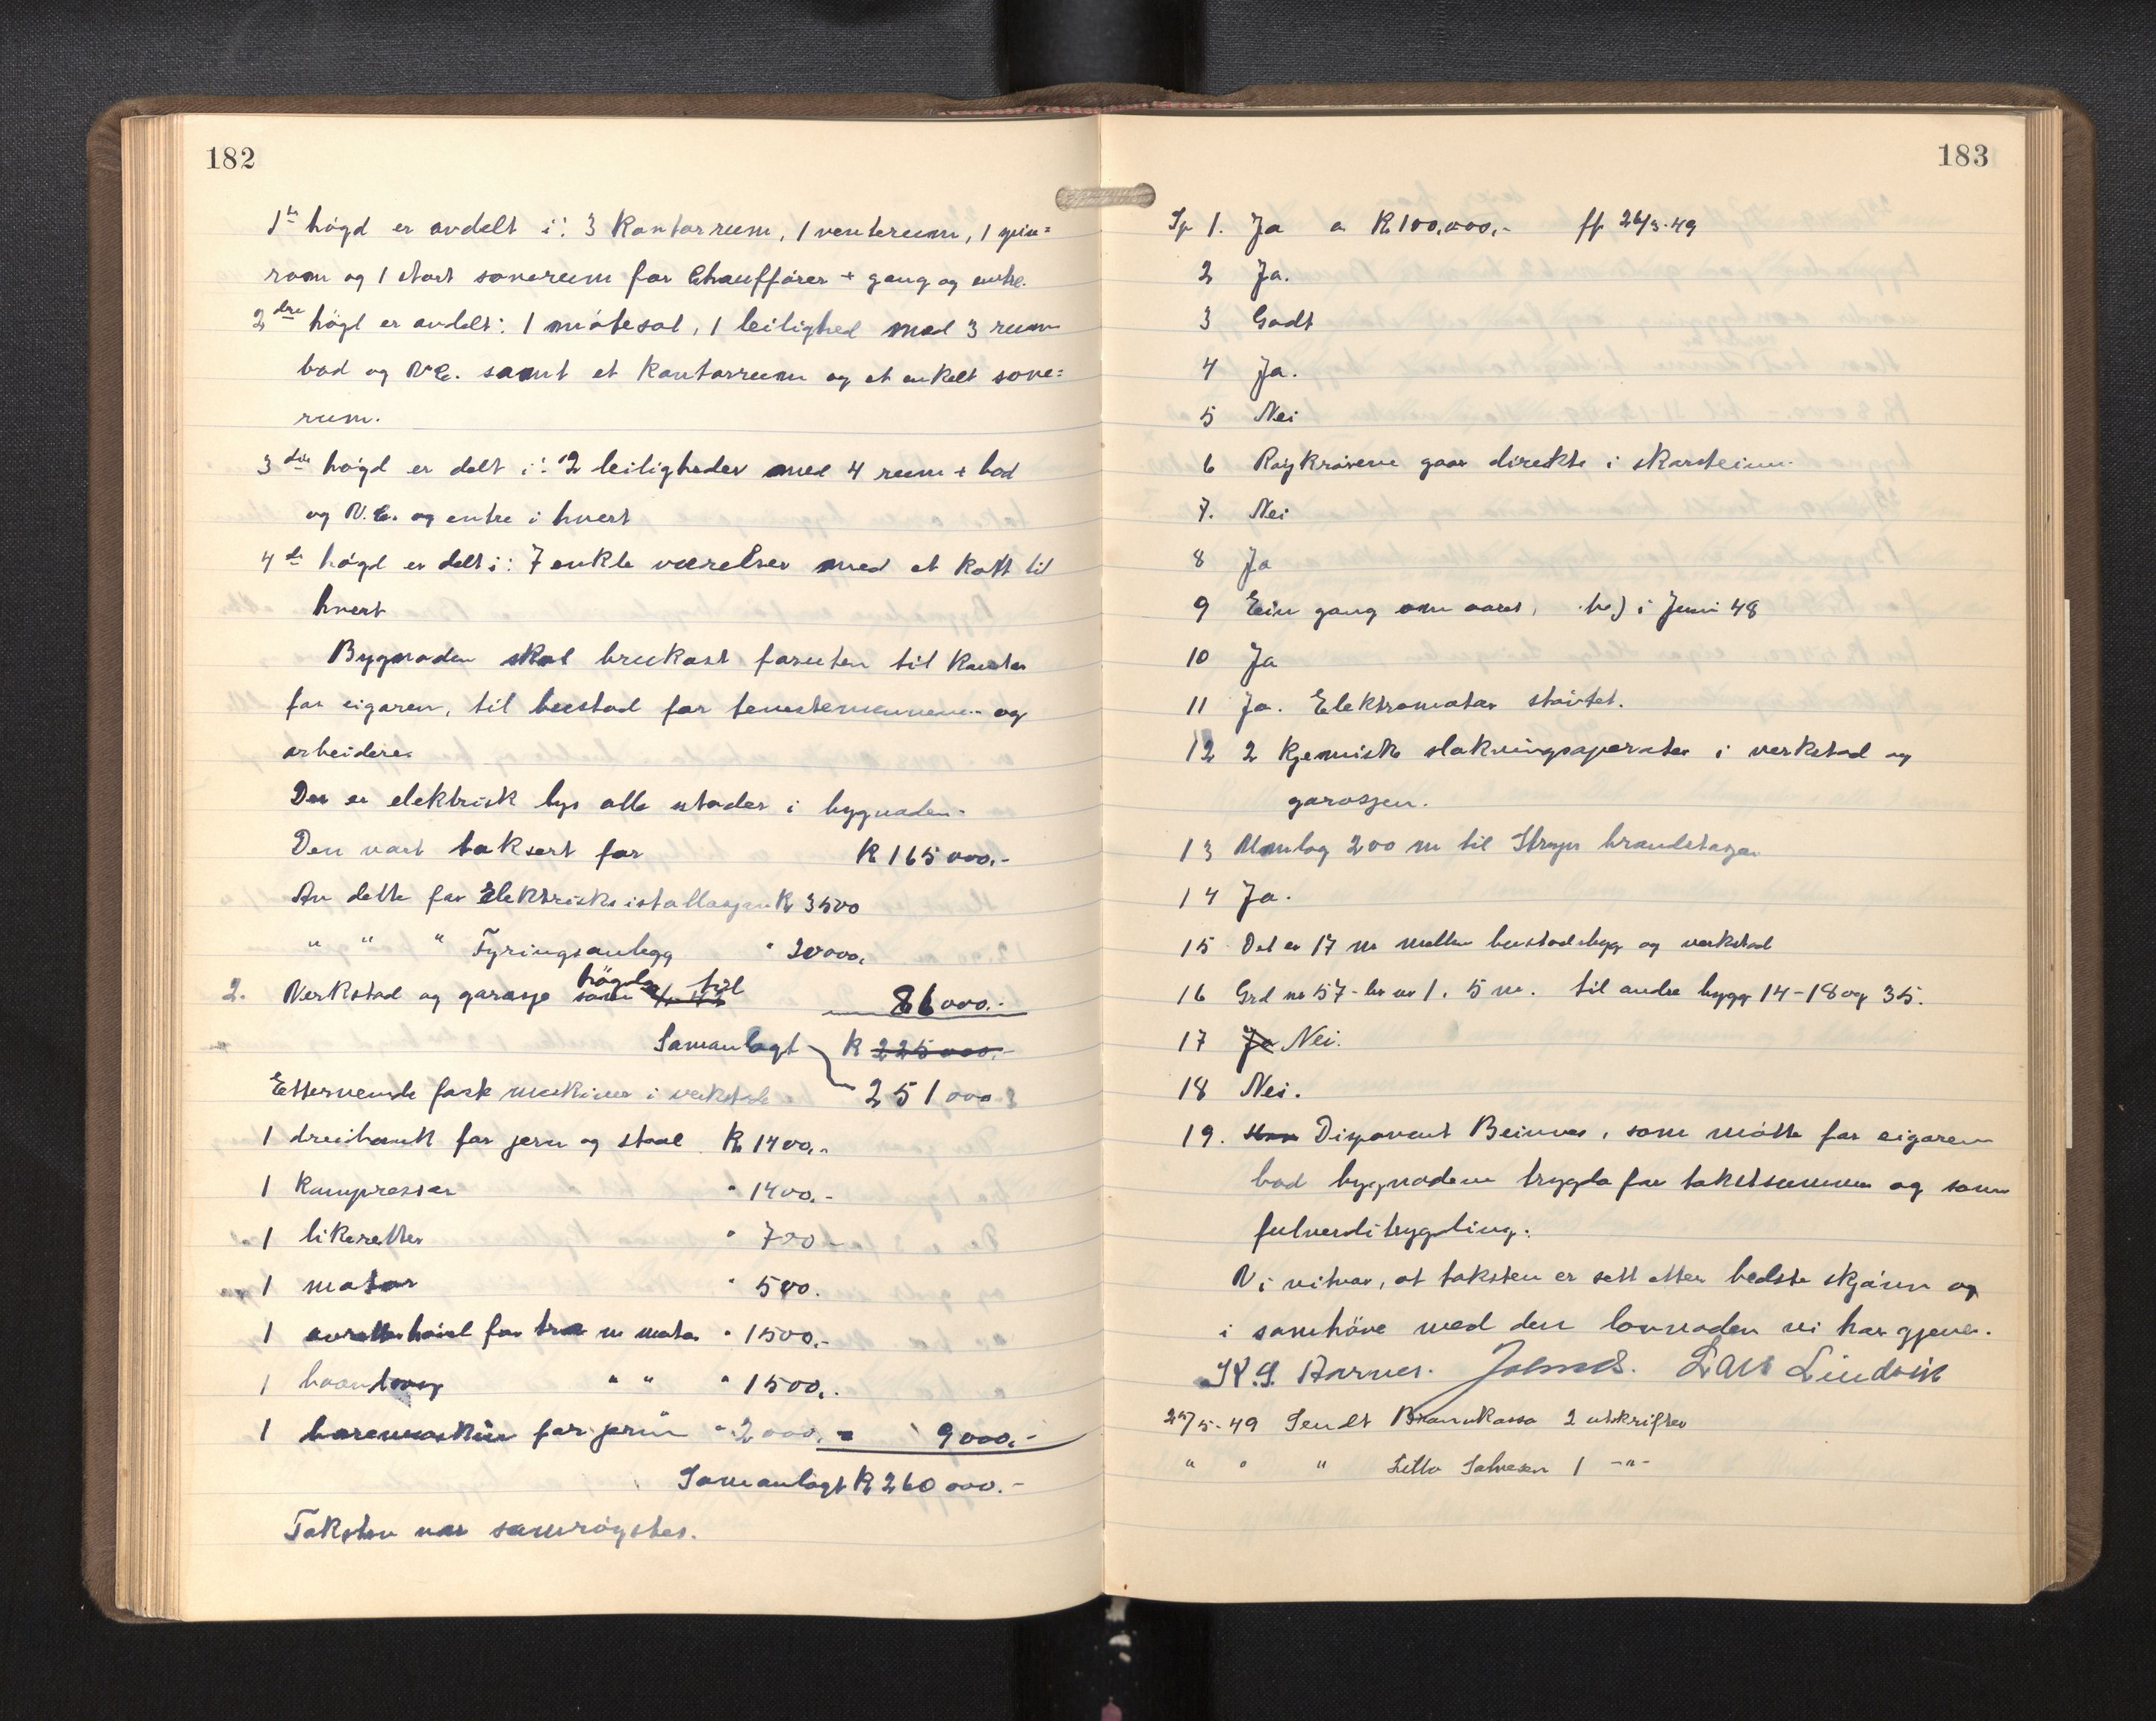 182
1ste högd er avdelt i: 3 Kontorrum, 1 venterum, 1 spise=
rom og 1 stort soverum for Chauffører + gang og entre.
2dre högd er avdelt: 1 mötesal, 1 leilighed med 3 rum
bad og V.C. samt et Kontorrum og et enkelt sove=
rum.
3die högd er delt i: 2 leiligheder med 4 rum + bad
og V.C. og entre i hvert
4de högd er delt i: 7 enkle værelser med et Kott til
hvert
Bygnaden skal brukast foruten til Kontor
for eigaren, til bustad for tenestemennene og
arbeidere.
Der er elektrisk lys alle stader i bygnaden.
Den vart taksert for K 165000.-
Av dette for Elektriske istallasjon K 3500
" " " Fyringsanlegg " 20000.
2. Verkstad og garasje som högda til 86000.-
Samanlagt K 225000.-
251000
Ettervende faste maskiner i verkstade
1 dreibenk for jern og staal K 1400.-
1 Kompressor " 1400.-
1 likeretter " 700.-
1 motor " 500.
1 avretterhövel for tre m motor " 1500.-
1 baandsag " " " 1500.-
1 boremaskin for jern " 2000.- 9000.-
Samanlagt K 260000.-
Taksten var samrøystes.
183
Sp 1. Ja a K 100,000.- ff 26/3-49
2 Ja.
3 Godt
4 Ja.
5 Nei
6 Røykrörene gaar direkte i skorsteinen.
7. Nei
8 Ja
9 Ein gang om aaret, i Juni 48
10 Ja
11 Ja. Elektromotor støvtet.
12 2 Kjemisk slökningsaparater i verkstad og
garasjen.
13 Umlag 200 m til Stryn brandstasjon
14 Ja.
15 Det er 17 m mellom bustadsbygg og verkstad
16 Grd nr 57 - br nr 1. 5 m. til andre bygg 14-18 og 35.
17 Ja Nei.
18 Nei.
19. Disponent Beinnes, som møtte for eigaren
bad bygnadene trygda for takstsummen og som
fulverditrygding.
Vi vitnar, at taksten er sett etter bedste skjønn og
i samhöve med den lovnaden vi har gjeve.
K. S. Aarnes. Lars Lindvik
25/5-49 Sendt Brannkassa 2 utskrifter
" " " Salvesen 1 -"-